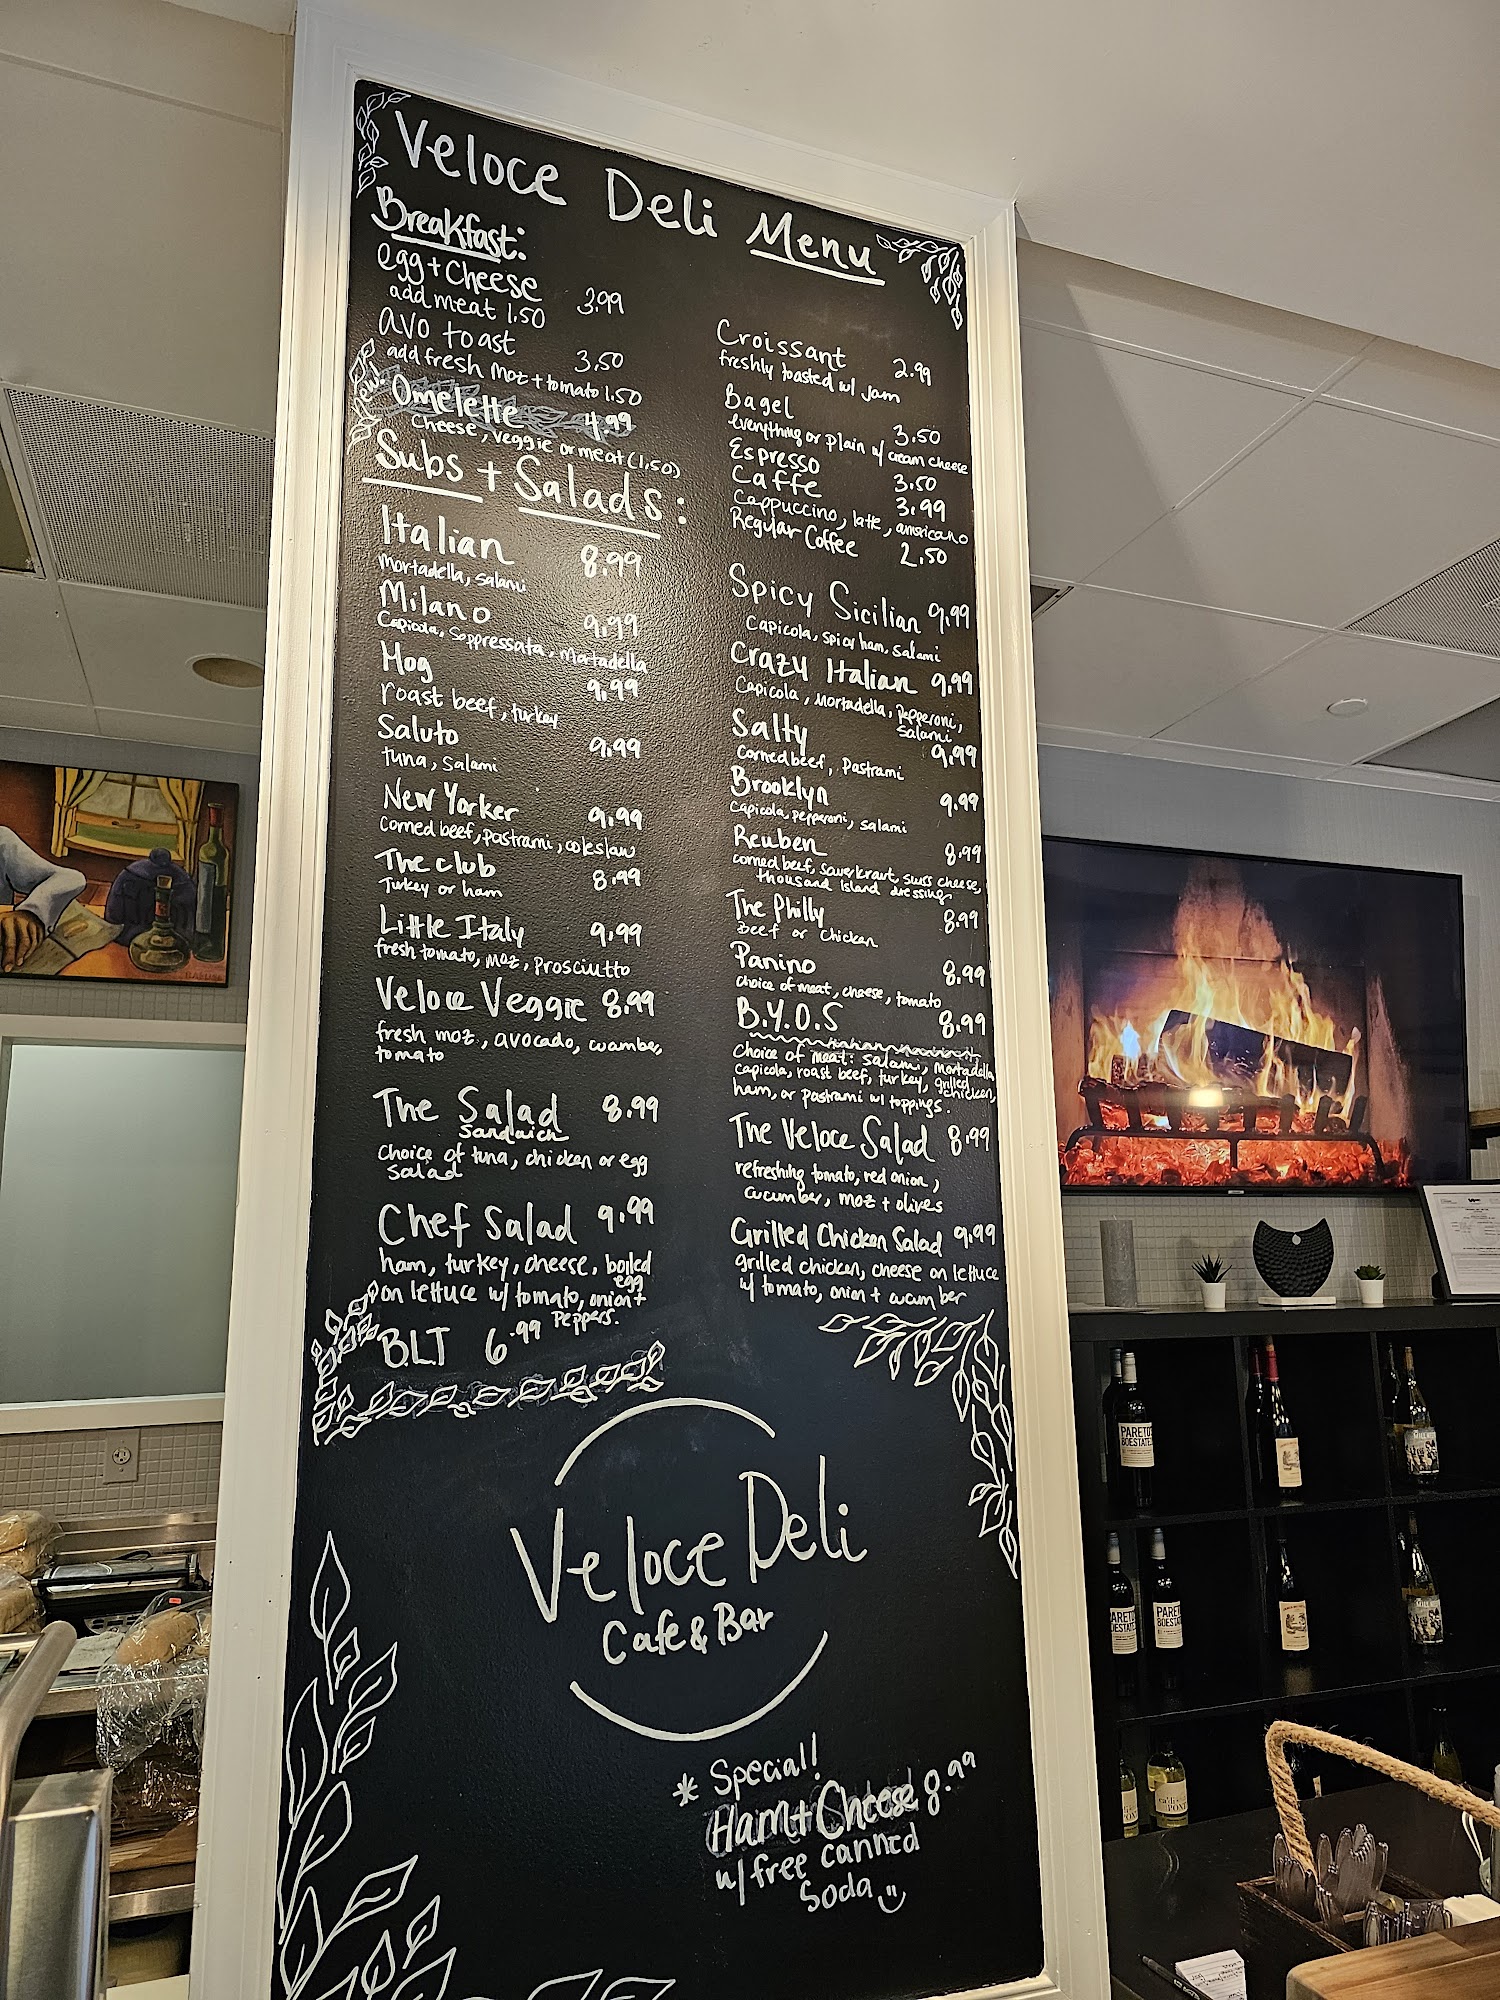 Veloce Deli Menu
Breakfast:
egg + cheese 3.99
add meat 1.50
avo toast 3.50
add fresh moz + tomato 1.50
new!
Omelette 4.99
Cheese, veggie or meat (1.50)
Croissant 2.99
freshly toasted w/ jam
Bagel 3.50
everything or plain w/ cream cheese
Espresso 3.50
Caffe 3.99
Cappuccino, latte, americano
Regular Coffee 2.50
Subs + Salads:
Italian 8.99
mortadella, salami
Milano 9.99
Capicola, Soppressata, Mortadella
Hog 9.99
roast beef, turkey
Saluto 9.99
tuna, salami
New Yorker 9.99
Corned beef, pastrami, coleslaw
The club 8.99
Turkey or ham
Little Italy 9.99
fresh tomato, moz, prosciutto
Veloce Veggie 8.99
fresh moz, avocado, cucumber,
tomato
The Salad 8.99
Sandwich
choice of tuna, chicken or egg
salad
Chef Salad 9.99
ham, turkey, cheese, boiled
egg
on lettuce w/ tomato, onion +
peppers.
B.L.T 6.99
Spicy Sicilian 9.99
Capicola, spicy ham, salami
Crazy Italian 9.99
Capicola, mortadella, pepperoni,
salami
Salty 9.99
Corned beef, Pastrami
Brooklyn 9.99
Capicola, pepperoni, salami
Reuben 8.99
corned beef, sauerkraut, swiss cheese,
thousand island dressing
The Philly 8.99
Beef or Chicken
Panino 8.99
choice of meat, cheese, tomato
B.Y.O.S 8.99
Choice of meat: salami, mortadella
capicola, roast beef, turkey, grilled
chicken,
ham, or pastrami w/ toppings.
The Veloce Salad 8.99
refreshing tomato, red onion,
cucumber, moz + olives
Grilled Chicken Salad 9.99
grilled chicken, cheese on lettuce
w/ tomato, onion + cucumber
Veloce Deli
Cafe & Bar
* Special!
Ham + Cheese 8.99
w/ free canned
Soda
PARETO'S